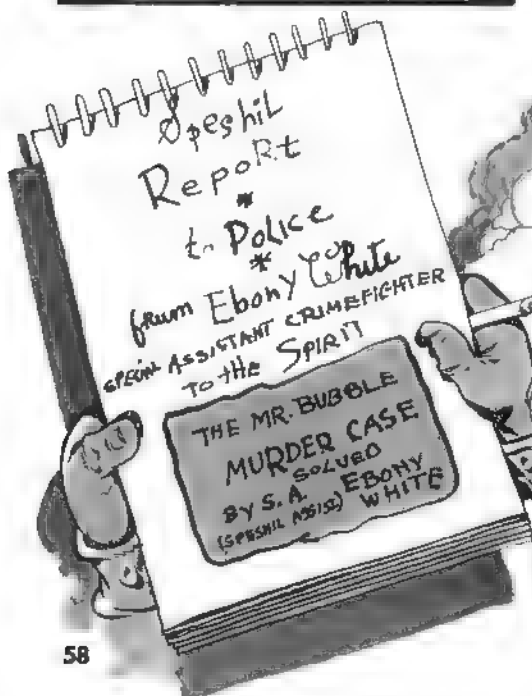 Speshil
Report
*
to Police
*
frum Ebony White
SPECIAL ASSISTANT CRIMEFIGHTER
TO tHe SPIRIT
THE MR. BUBBLE
MURDER CASE
SOLVED
BY S. A. EBONY
(SPESHIL ASSIST) WHITE
58